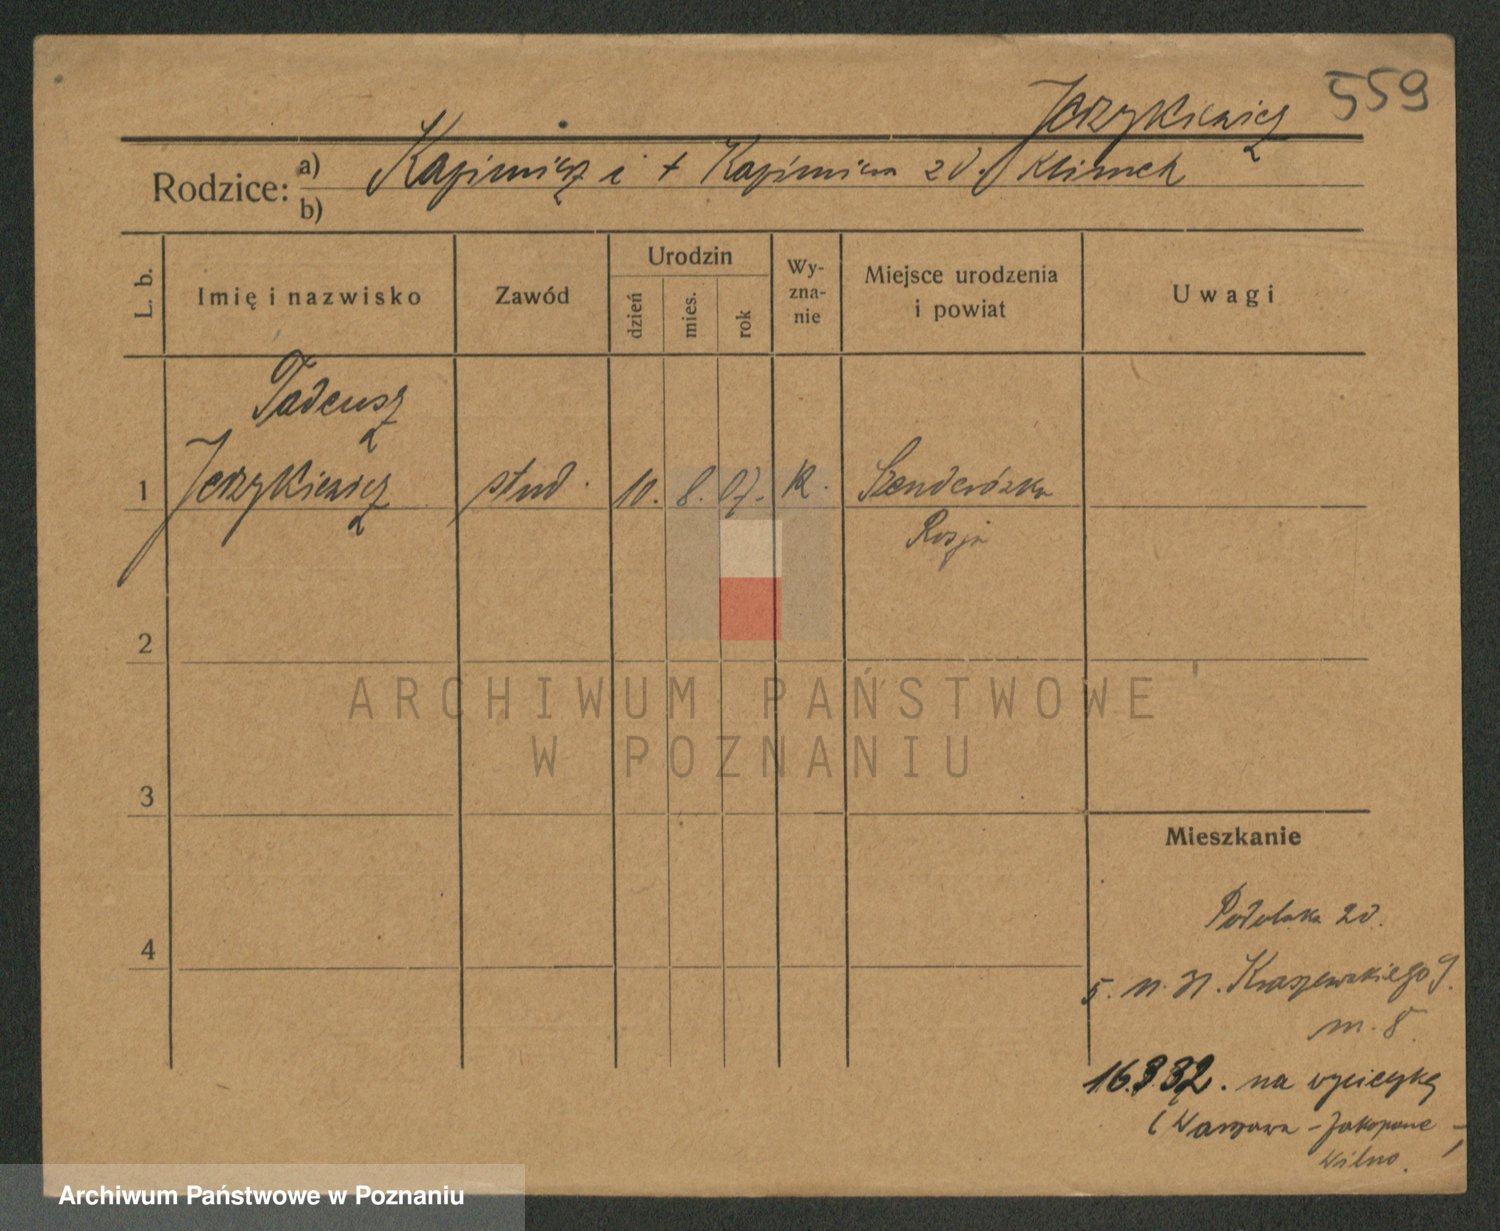 559
Jerzykiewicz
Rodzice:
a) Kazimierz i + Kazimiera z d. Klimek
b)
L. b.
Imię i nazwisko
Zawód
Urodzin
dzień
mies.
rok
Wy-
zna-
nie
Miejsce urodzenia
i powiat
Uwagi
Tadeusz
1 Jerzykiewicz stud. 10. 8. 07. k. Szenderówka
Rosja
2
3
4
Mieszkanie
Podolska 20.
5. 11. 31. Kraszewskiego 9.
m. 8
16.9 32. na wycieczkę
(Warszawa - Zakopane -
Wilno.
ARCHIWUM PAŃSTWOWE
W POZNANIU
Archiwum Państwowe w Poznaniu